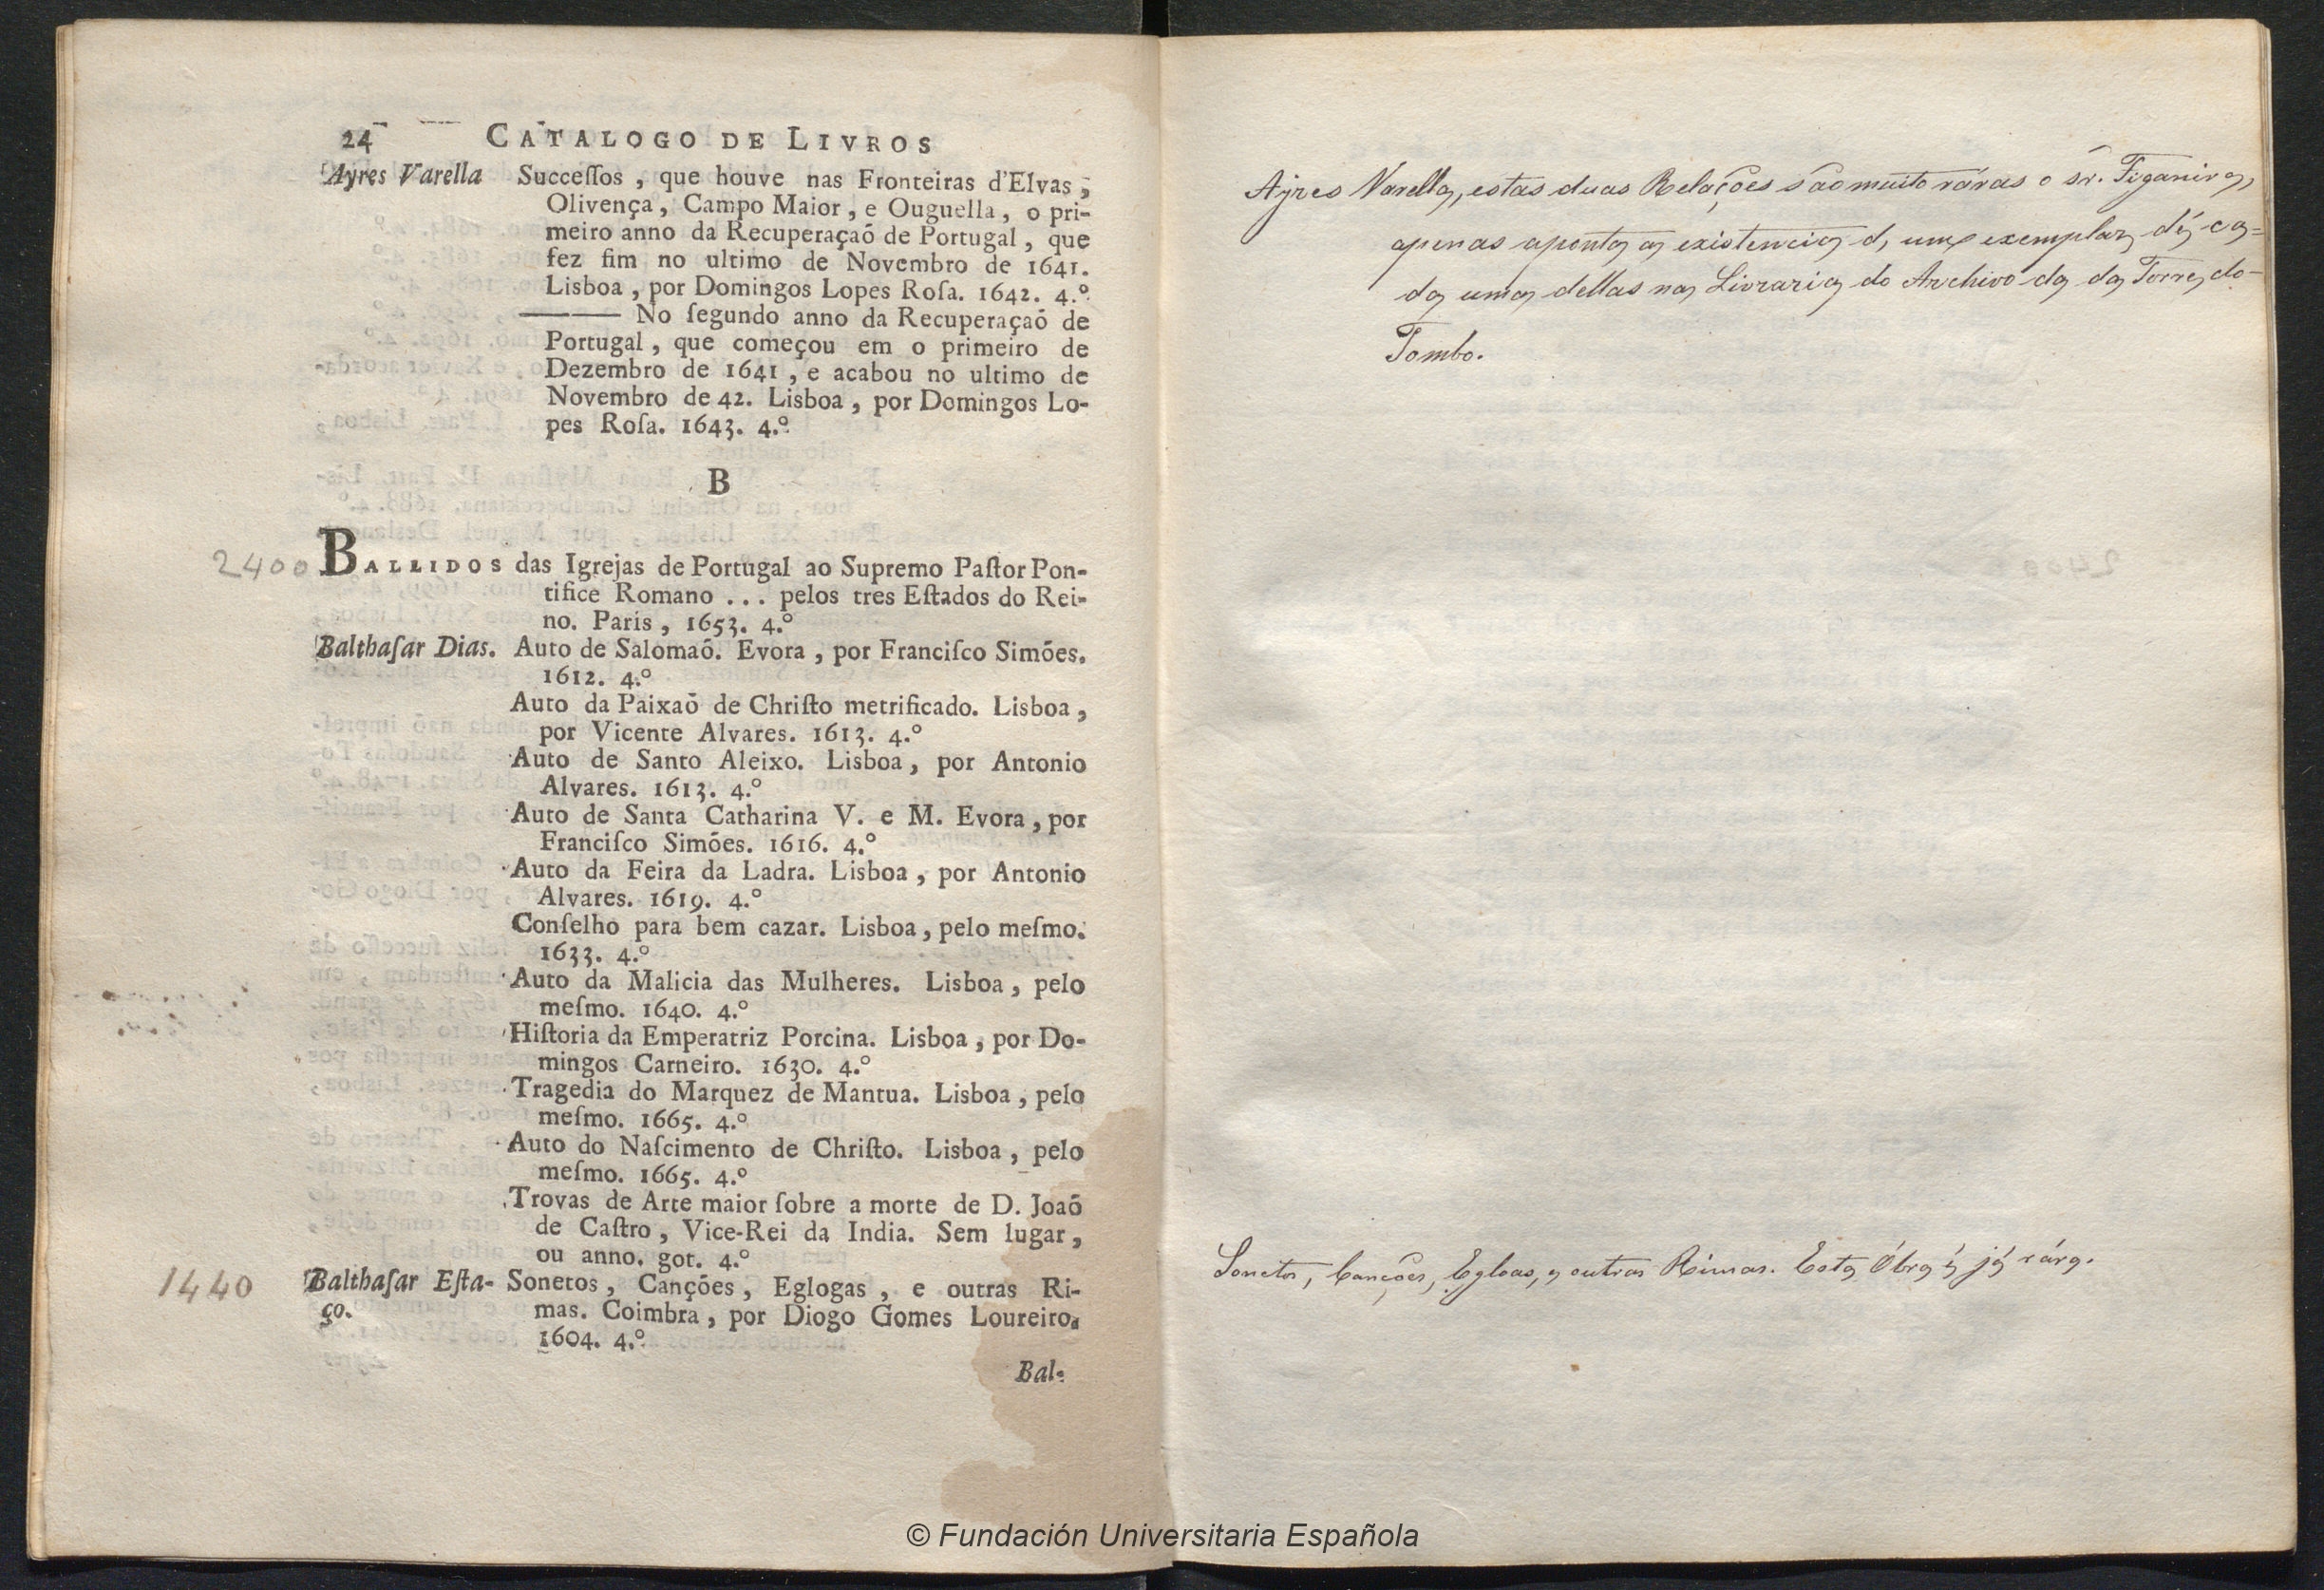 24 CATALOGO DE LIVROS
Ayres Varella Succeſſos , que houve nas Fronteiras d'Elvas ,
Olivença , Campo Maior , e Ouguella , o pri-
meiro anno da Recuperaçaõ de Portugal , que
fez fim no ultimo de Novembro de 1641.
Lisboa , por Domingos Lopes Roſa. 1642. 4.º
——— No ſegundo anno da Recuperaçaõ de
Portugal , que começou em o primeiro de
Dezembro de 1641 , e acabou no ultimo de
Novembro de 42. Lisboa , por Domingos Lo-
pes Roſa. 1643. 4.º
B
2400 BALLIDOS das Igrejas de Portugal ao Supremo Paſtor Pon-
tifice Romano ... pelos tres Eſtados do Rei-
no. Paris , 1653. 4.º
Balthaſar Dias. Auto de Salomaõ. Evora , por Franciſco Simões.
1612. 4.º
Auto da Paixaõ de Chriſto metrificado. Lisboa ,
por Vicente Alvares. 1613. 4.º
Auto de Santo Aleixo. Lisboa , por Antonio
Alvares. 1613. 4.º
Auto de Santa Catharina V. e M. Evora , por
Franciſco Simões. 1616. 4.º
Auto da Feira da Ladra. Lisboa , por Antonio
Alvares. 1619. 4.º
Conſelho para bem cazar. Lisboa , pelo meſmo.
1633. 4.º
Auto da Malicia das Mulheres. Lisboa , pelo
meſmo. 1640. 4.º
Hiſtoria da Emperatriz Porcina. Lisboa , por Do-
mingos Carneiro. 1630. 4.º
Tragedia do Marquez de Mantua. Lisboa , pelo
meſmo. 1665. 4.º
Auto do Naſcimento de Chriſto. Lisboa , pelo
meſmo. 1665. 4.º
Trovas de Arte maior ſobre a morte de D. Joaõ
de Caſtro , Vice-Rei da India. Sem lugar ,
ou anno. got. 4.º
1440 Balthaſar Eſta- Sonetos , Canções , Eglogas , e outras Ri-
ço. mas. Coimbra , por Diogo Gomes Loureiro.
1604. 4.º
Bal-
Ayres Varella, estas duas Relações são muito ráras o sr. Figaniere,
apenas aponta a existencia d, um exemplar, dé, ca=
da uma dellas na Livraria do Archivo da da Torre, do-
Tombo.
Sonetos, Canções, Egloas, e outras Rimas. Esta Óbra é já rára.
© Fundación Universitaria Española